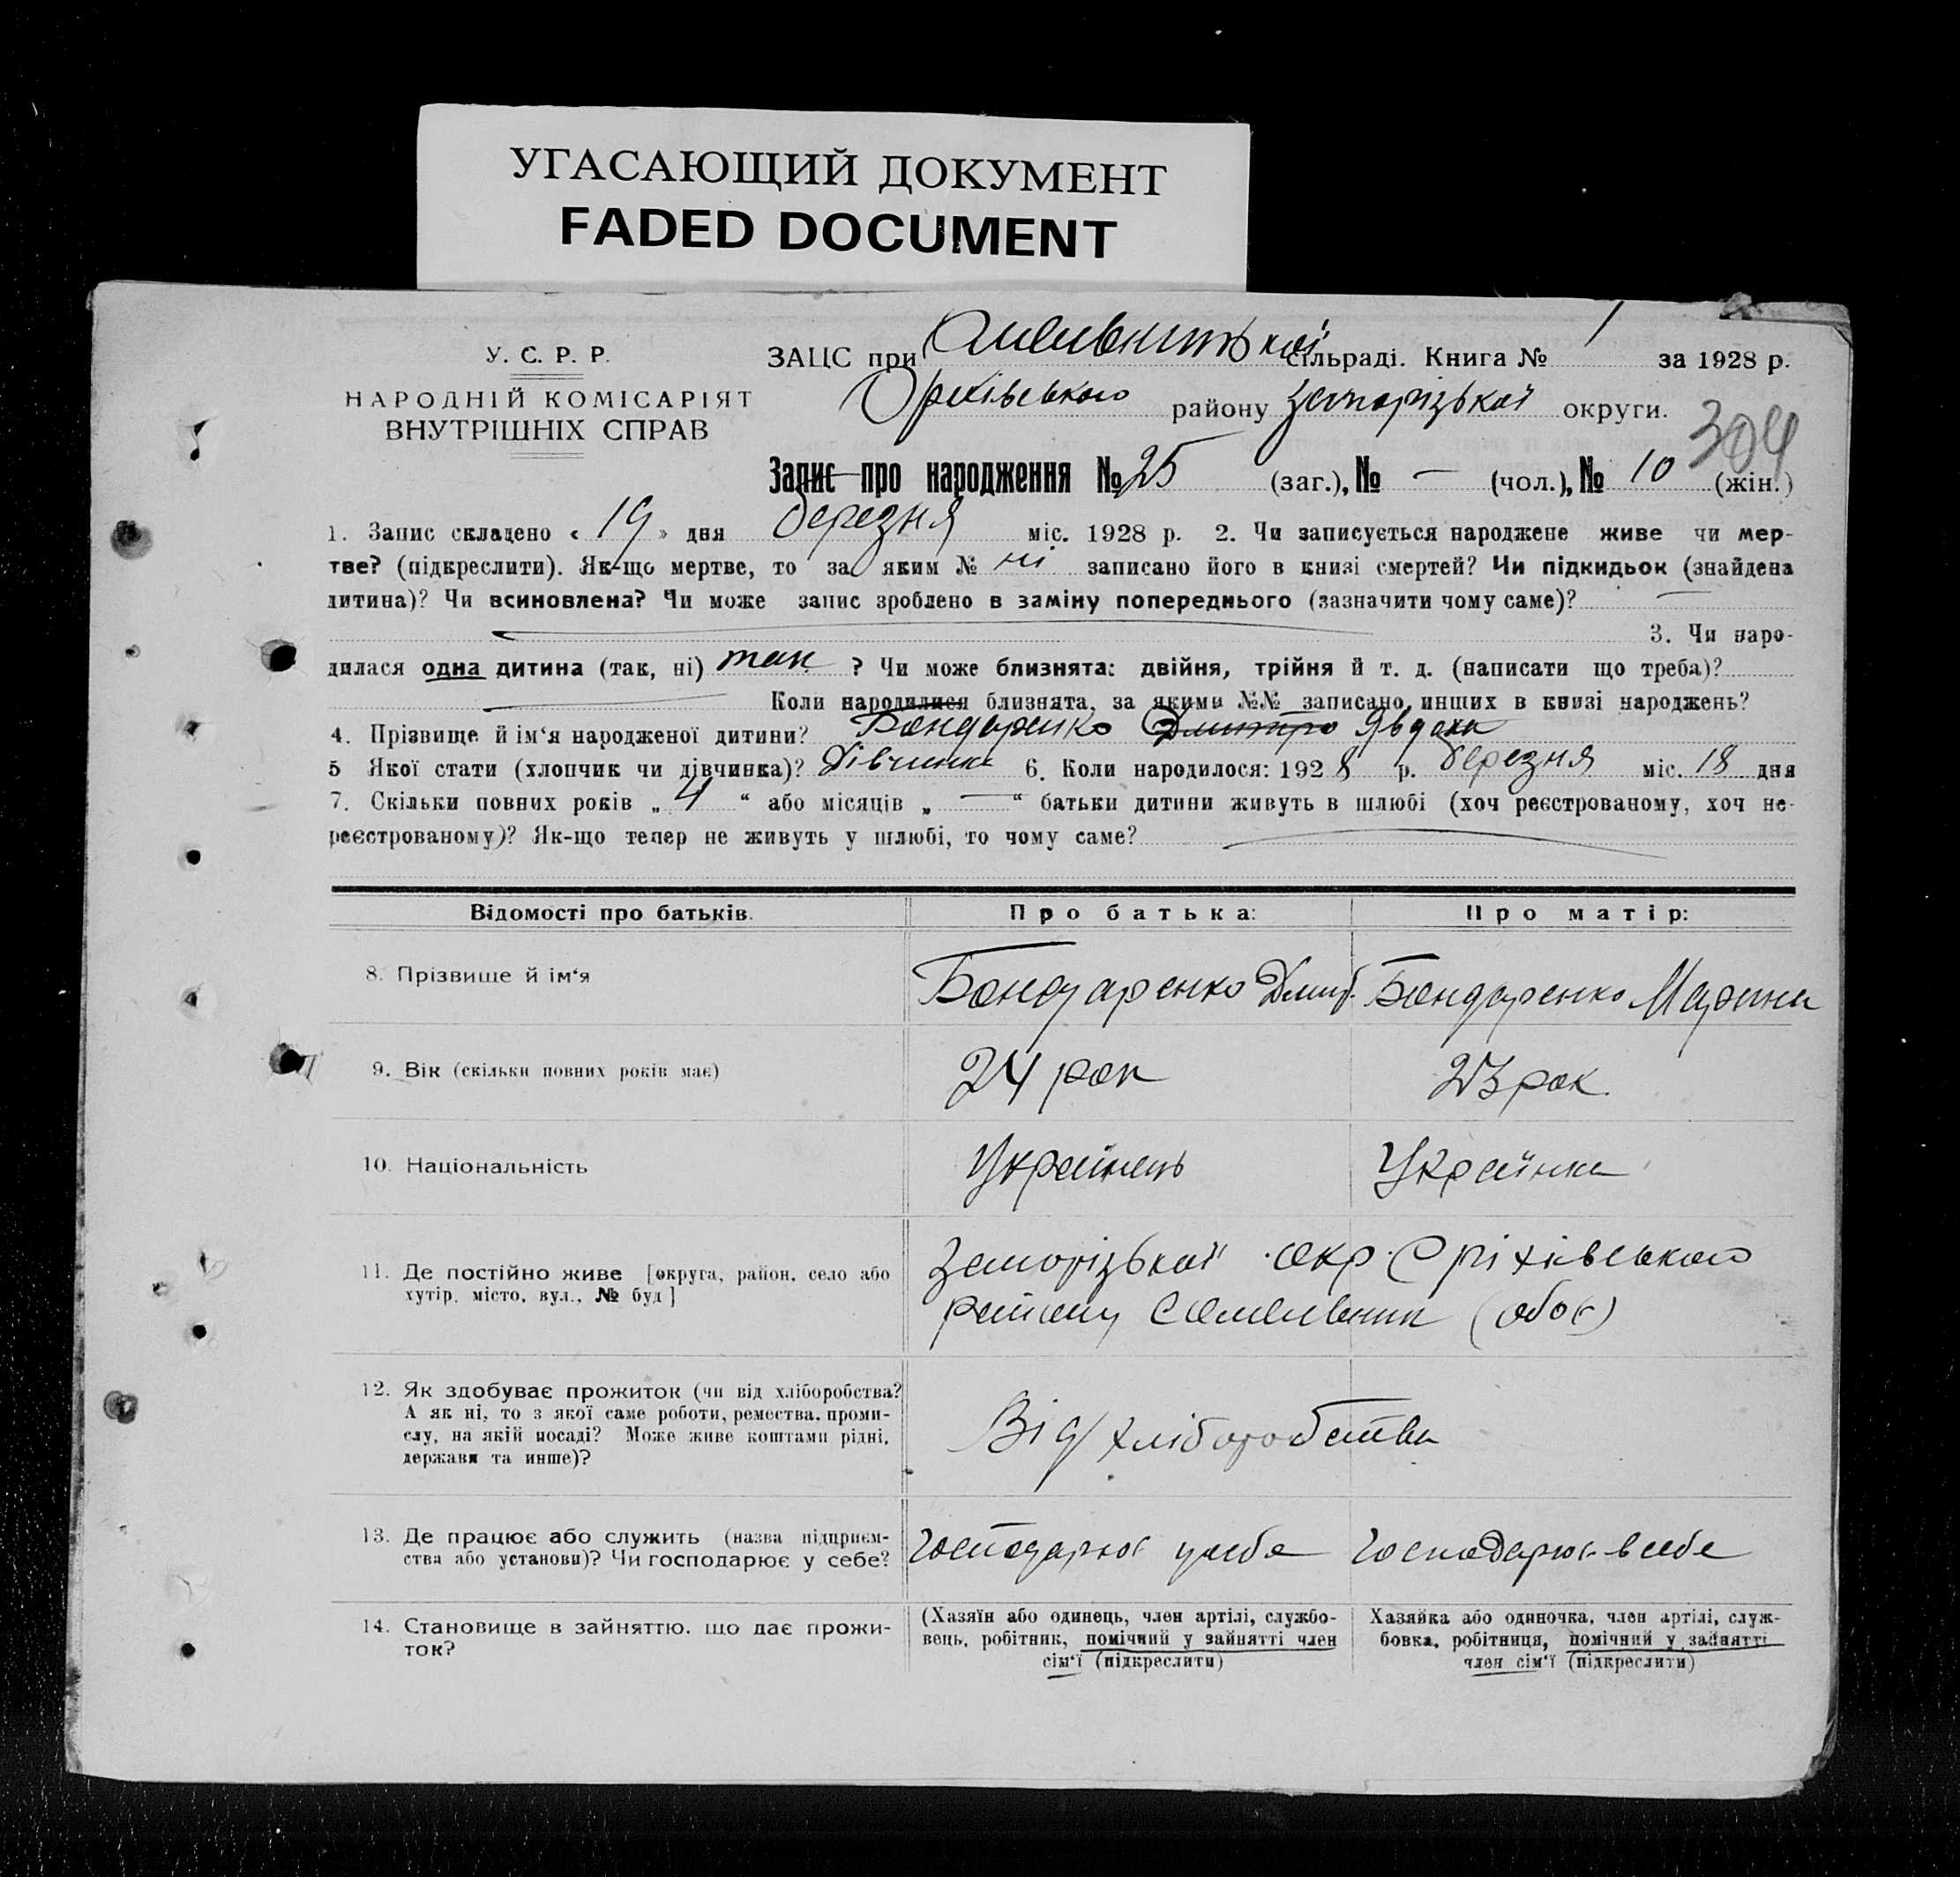 УГАСАЮЩИЙ ДОКУМЕНТ
FADED DOCUMENT
У. С. Р. Р.
НАРОДНІЙ КОМІСАРІЯТ
ВНУТРІШНІХ СПРАВ
ЗАЦС при сільраді. Книга № 1 за 1928 р.
Оріхівського району Запорізької округи.
304
Запис про народження № 25 (заг.), № — (чол.), № 10 (жін.)
1. Запис складено « 19 » дня березня міс. 1928 р. 2. Чи записується народжене живе чи мер-
тве? (підкреслити). Як-що мертве, то за яким № ні записано його в книзі смертей? Чи підкидьок (знайдена
дитина)? Чи всиновлена? Чи може запис зроблено в заміну попереднього (зазначити чому саме)? —
3. Чи наро-
дилася одна дитина (так, ні) так ? Чи може близнята: двійня, трійня й т. д. (написати що треба)?
Коли народилися близнята, за якими №№ записано инших в книзі народжень?
4. Прізвище й ім‘я народженої дитини? Бондаренко Дмитро Явдоха
5 Якої стати (хлопчик чи дівчинка)? Дівчинка 6. Коли народилося: 1928 р. березня міс. 18 дня
7. Скільки повних років „ 4 “ або місяців „ — “ батьки дитини живуть в шлюбі (хоч реєстрованому, хоч не-
реєстрованому)? Як-що тепер не живуть у шлюбі, то чому саме?
Відомості про батьків. Про батька: Про матір:
8. Прізвище й ім‘я Бондаренко Дмит. Бондаренко Марина
9. Вік (скільки повних років має) 24 рок 23 рок.
10. Національність Українець Українка
11. Де постійно живе [округа, район, село або
хутір, місто, вул., № буд]
Запорізької окр. Оріхівського
району (обоє)
12. Як здобуває прожиток (чи від хліборобства?
А як ні, то з якої саме роботи, ремества, проми-
слу, на якій посаді? Може живе коштами рідні,
держави та инше)?
Від хліборобства
13. Де працює або служить (назва підприєм-
ства або установи)? Чи господарює у себе?
Господарює у себе Господарює в себе
14. Становище в зайняттю, що дає прожи-
ток?
(Хазяїн або одинець, член артілі, службо-
вець, робітник, помічний у зайнятті член
сім‘ї (підкреслити)
Хазяйка або одиночка, член артілі, служ-
бовка, робітниця, помічний у зайнятті
член сім‘ї (підкреслити)